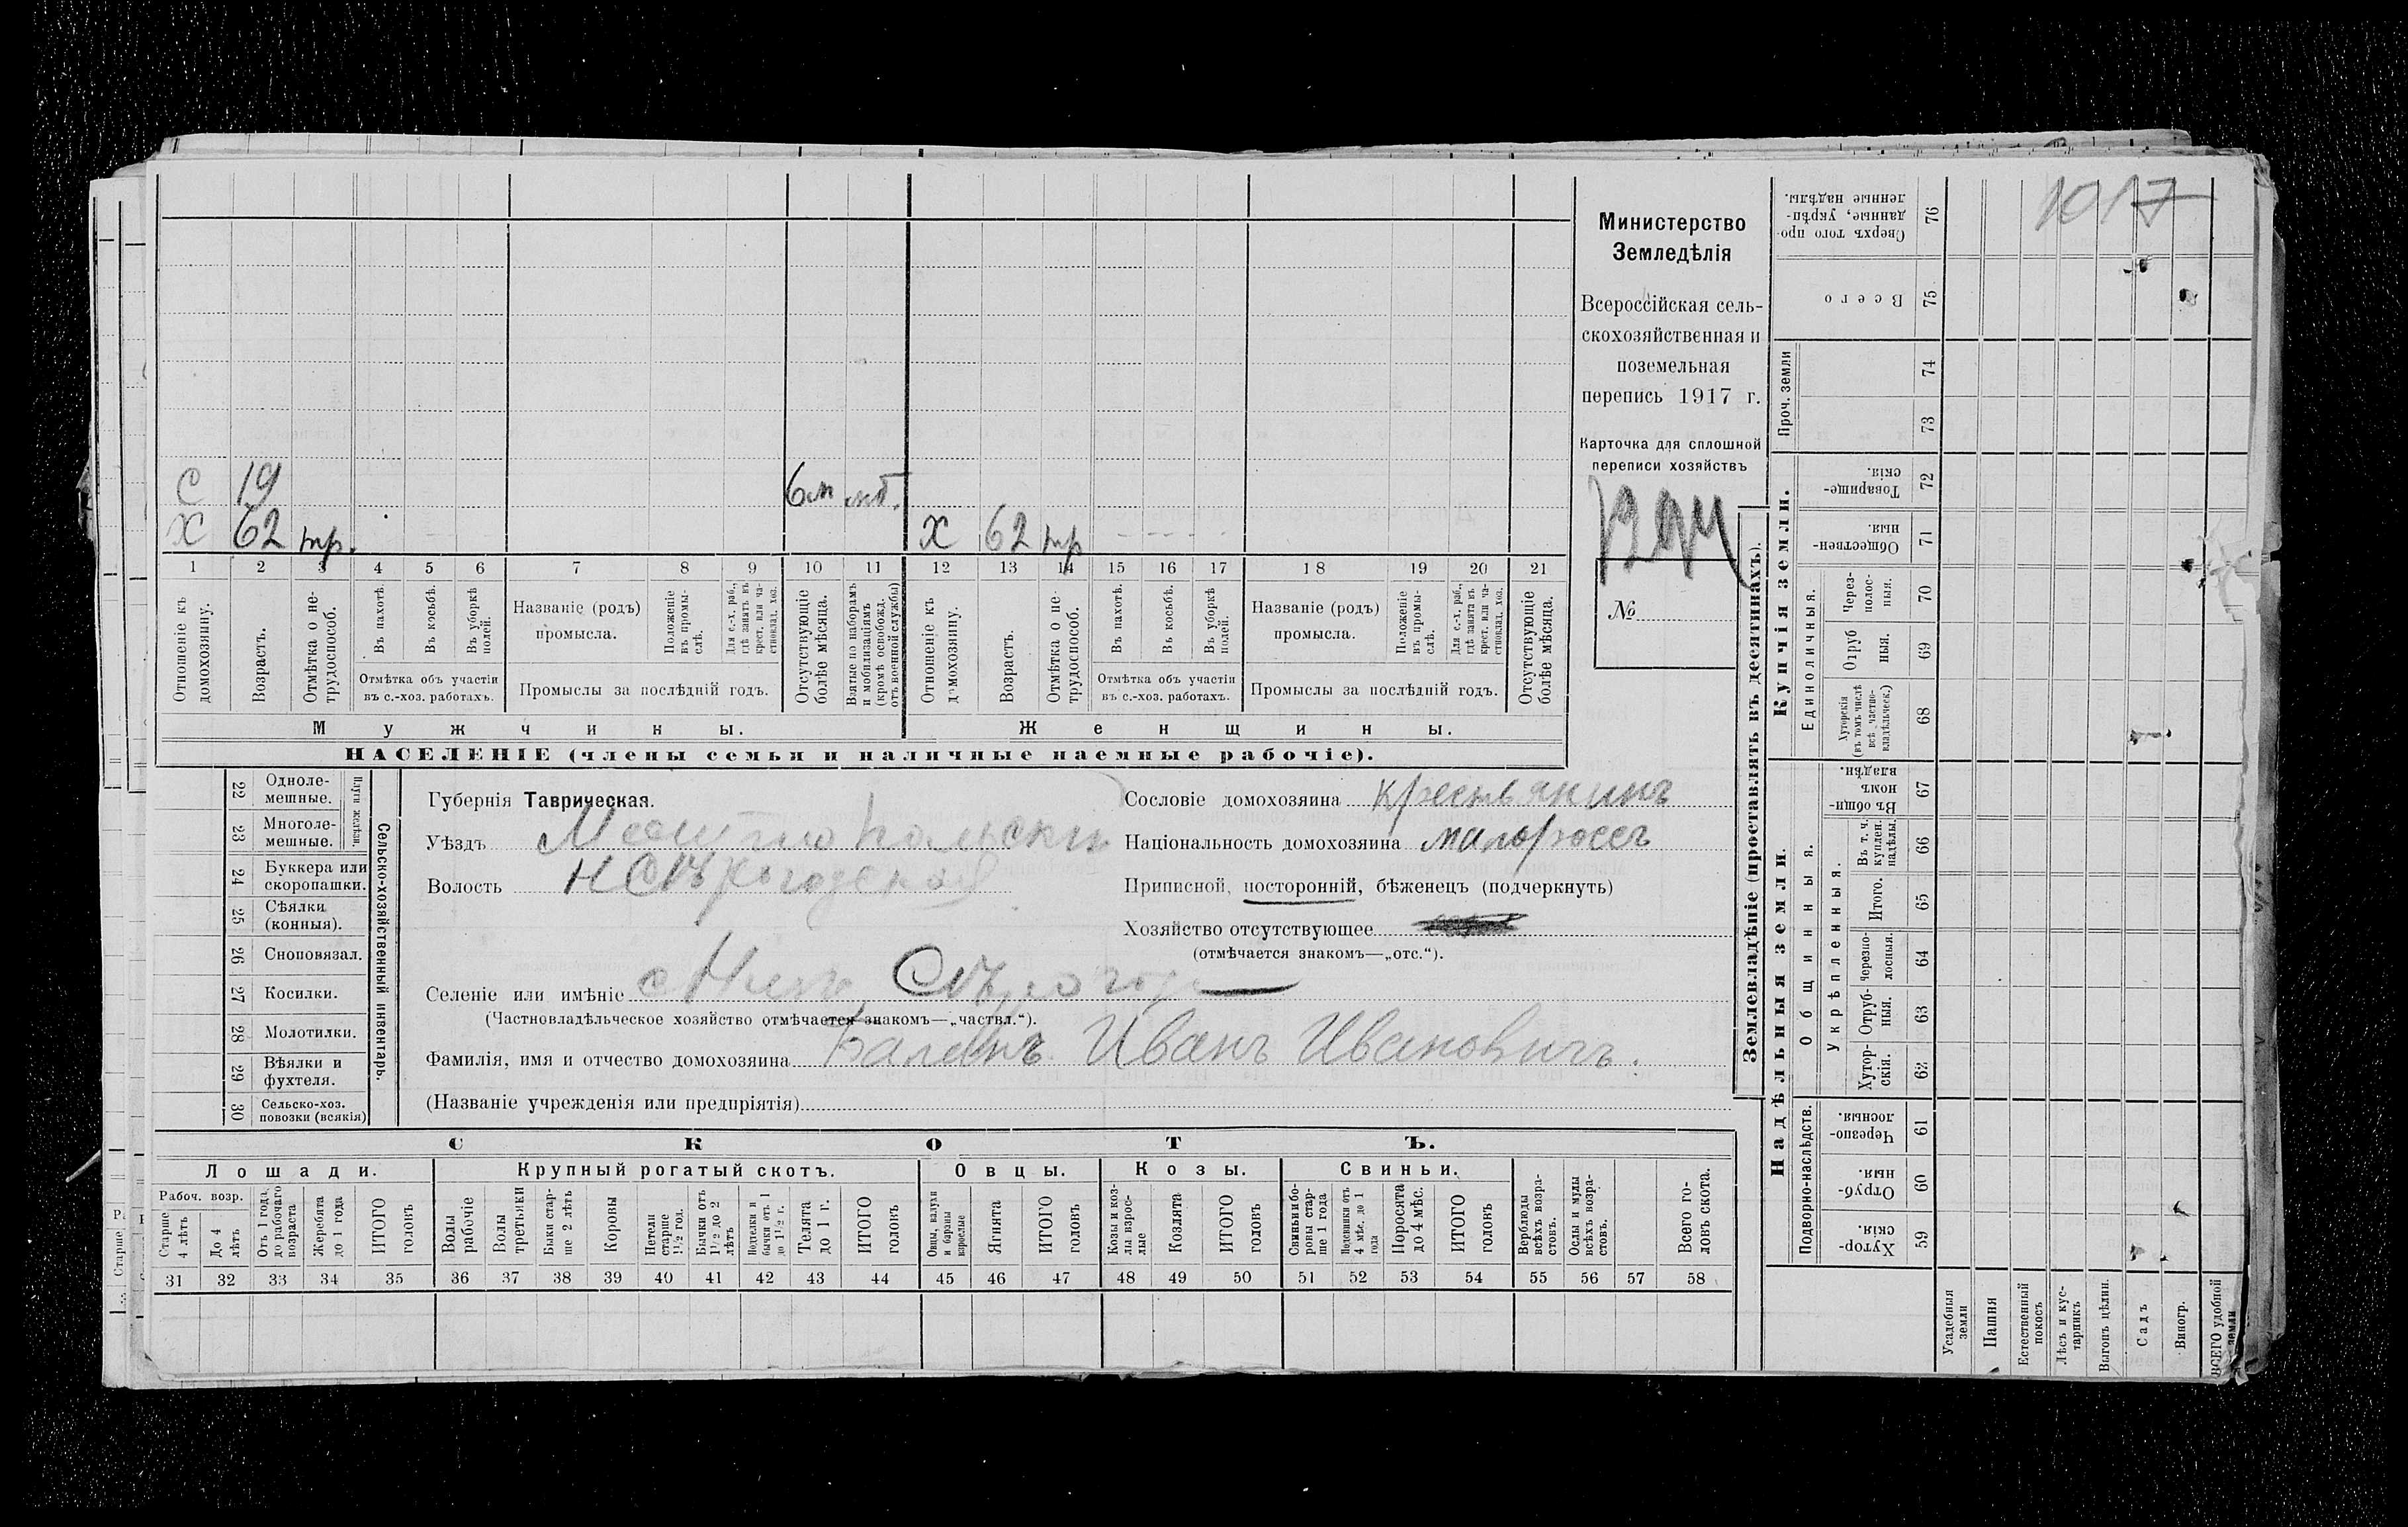 1017
Министерство
Земледѣлія
Всероссійская сель-
скохозяйственная и
поземельная
перепись 1917 г.
Карточка для сплошной
переписи хозяйствъ
№
С 19 6 м мб.
Х 62 нтр. Х 62 нтр
1 2 3 4 5 6 7 8 9 10 11 12 13 14 15 16 17 18 19 20 21
Отношеніе къ домохозяину.
Возрастъ.
Отмѣтка о не-трудоспособ.
Въ пахотѣ.
Въ косьбѣ.
Въ уборкѣ полей.
Отмѣтка объ участіи
въ с.-хоз. работахъ.
Названіе (родъ)
промысла.
Положеніе въ промы-слѣ.
Для с.-х. раб., гдѣ занятъ въ крест. или ча-стновлад. хоз.
Промыслы за послѣдній годъ.
Отсутствующіе болѣе мѣсяца.
Взятые по наборамъ и мобилизаціямъ (кромѣ освобожд. отъ военной службы)
Отношеніе къ домохозяину.
Возрастъ.
Отмѣтка о не-трудоспособ.
Въ пахотѣ.
Въ косьбѣ.
Въ уборкѣ полей.
Отмѣтка объ участіи
въ с.-хоз. работахъ.
Названіе (родъ)
промысла.
Положеніе въ промы-слѣ.
Для с.-х. раб., гдѣ занята въ крест. или ча-стновлад. хоз.
Промыслы за послѣдній годъ.
Отсутствующіе болѣе мѣсяца.
Мужчины. Женщины.
НАСЕЛЕНІЕ (члены семьи и наличные наемные рабочіе).
Сельско-хозяйственный инвентарь.
Плуги желѣзн.
22 Одноле-мешные.
23 Многоле-мешные.
24 Буккера или скоропашки.
25 Сѣялки (конныя).
26 Сноповязал.
27 Косилки.
28 Молотилки.
29 Вѣялки и фухтеля.
30 Сельско-хоз. повозки (всякія)
Губернія Таврическая.
Уѣздъ Мелитопольски
Волость
Селеніе или имѣніе
(Частновладѣльческое хозяйство отмѣчается знакомъ—„частвл.“).
Фамилія, имя и отчество домохозяина Иванъ Ивановичъ.
(Названіе учрежденія или предпріятія)
Сословіе домохозяина крестьянинъ
Національность домохозяина малороссъ
Приписной, посторонній, бѣженецъ (подчеркнуть)
Хозяйство отсутствующее
(отмѣчается знакомъ—„отс.“).
СКОТЪ.
Лошади. Крупный рогатый скотъ. Овцы. Козы. Свиньи.
Рабоч. возр.
Старше 4 лѣтъ
До 4 лѣтъ
Отъ 1 года до рабочаго возраста
Жеребята до 1 года
ИТОГО головъ
Волы рабочіе
Волы третьяки
Быки стар-ше 2 лѣтъ
Коровы
Нетели старше 1½ год.
Бычки отъ 1½ до 2 лѣтъ
Подтелки и бычки отъ 1 до 1½ г.
Телята до 1 г.
ИТОГО головъ
Овцы, валухи и бараны взрослые
Ягнята
ИТОГО головъ
Козы и коз-лы взрос-лые
Козлята
ИТОГО головъ
Свиньи и бо-ровы стар-ше 1 года
Подсвинки отъ 4 мѣс. до 1 года
Поросята до 4 мѣс.
ИТОГО головъ
Верблюды всѣхъ возра-стовъ.
Ослы и мулы всѣхъ возра-стовъ.
Всего го-ловъ скота.
31 32 33 34 35 36 37 38 39 40 41 42 43 44 45 46 47 48 49 50 51 52 53 54 55 56 57 58
Землевладѣніе (проставлять въ десятинахъ).
Надѣльныя земли. Купчія земли. Проч. земли
Подворно-наслѣдств.
Общинныя.
Укрѣпленныя.
Единоличныя.
Хутор-скія. 59
Отруб-ныя. 60
Черезпо-лосныя. 61
Хутор-скія. 62
Отруб-ныя. 63
Черезпо-лосныя. 64
Итого. 65
Въ т. ч. куплен. надѣлы. 66
Въ общин-номъ владѣн. 67
Хуторскія (въ томъ числѣ всѣ частно-владѣльческ.) 68
Отруб ныя. 69
Через-полос-ныя. 70
Обществен-ныя. 71
Товарище-скія. 72
73
74
Всего 75
Сверхъ того про-данные, укрѣп-ленные надѣлы. 76
Усадебныя земли
Пашня
Естественный покосъ
Лѣсъ и кус-тарникъ
Выгонъ цѣлин.
Садъ
Виногр.
ВСЕГО удобной земли